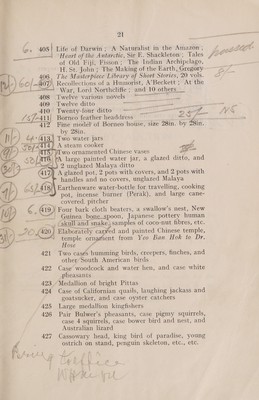 21
6. 405 Life of Darwin; A Naturalist in the Amazon;
Heart of the Antarctic, Sir E. Shackleton; Tales
of Old Fiji, Fison; The Indian Archipelago,
H. St. John; The Making of the Earth, Gregory
406 The Masterpiece Library of Short Stories, 20 vols.
407 Recollections of a Humorist, A'Beckett; At the
War, Lord Northcliffe; and 10 others
408 Twelve various novels
409 Twelve ditto
410 Twenty-four ditto
411 Borneo feather headdress
412 Fine model of Borneo house, size 28in. by 28in.
by 28in.
413 Two water jars
414 A steam cooker
415 Two ornamented Chinese vases
416 A large painted water jar, a glazed ditto, and
2 unglazed Malaya ditto
417 A glazed pot, 2 pots with covers, and 2 pots with
handles and no covers, unglazed Malaya
418 Earthenware water-bottle for travelling, cooking
pot, incense burner (Perak), and large cane-
covered pitcher
6. 419 Four bark cloth beaters, a swallow's nest, New
Guinea bone spoon, Japanese pottery human
skull and snake, samples of cocoa-nut fibres, etc.
420 Elaborately carved and painted Chinese temple,
temple ornament from Yeo Ban Hok to Dr.
Hose
421 Two cases humming birds, creepers, finches, and
other South American birds
422 Case woodcock and water hen, and case white
pheasants
423 Medallion of bright Pittas
424 Case of Californian quails, laughing jackass and
goatsucker, and case oyster catchers
425 Large medallion kingfishers
426 Pair Bulwer's pheasants, case pigmy squirrels,
case 4 squirrels, case bower bird and nest, and
Australian lizard
427 Cassowary head, king bird of paradise, young
ostrich on stand, penguin skeleton, etc., etc.